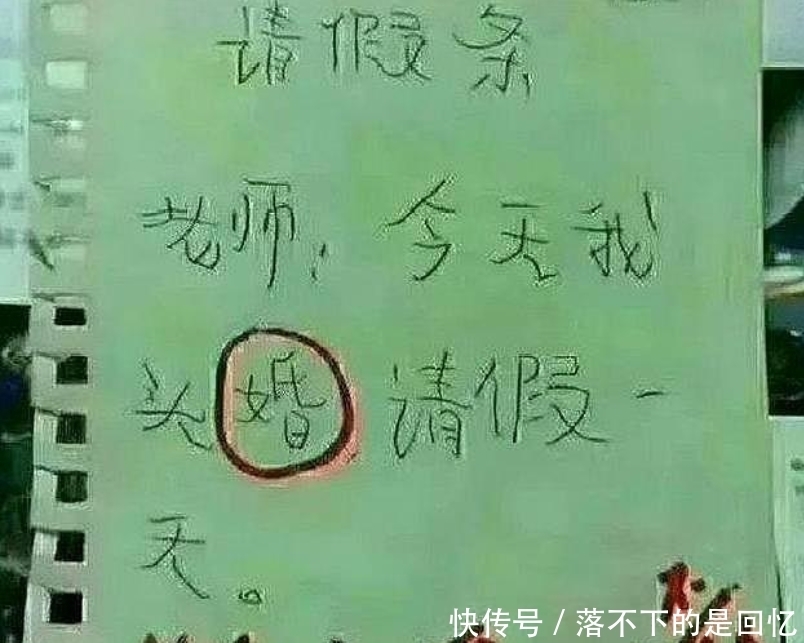 请假条
老师：今天我
头婚请假一
天。
快传号/落不下的是回忆